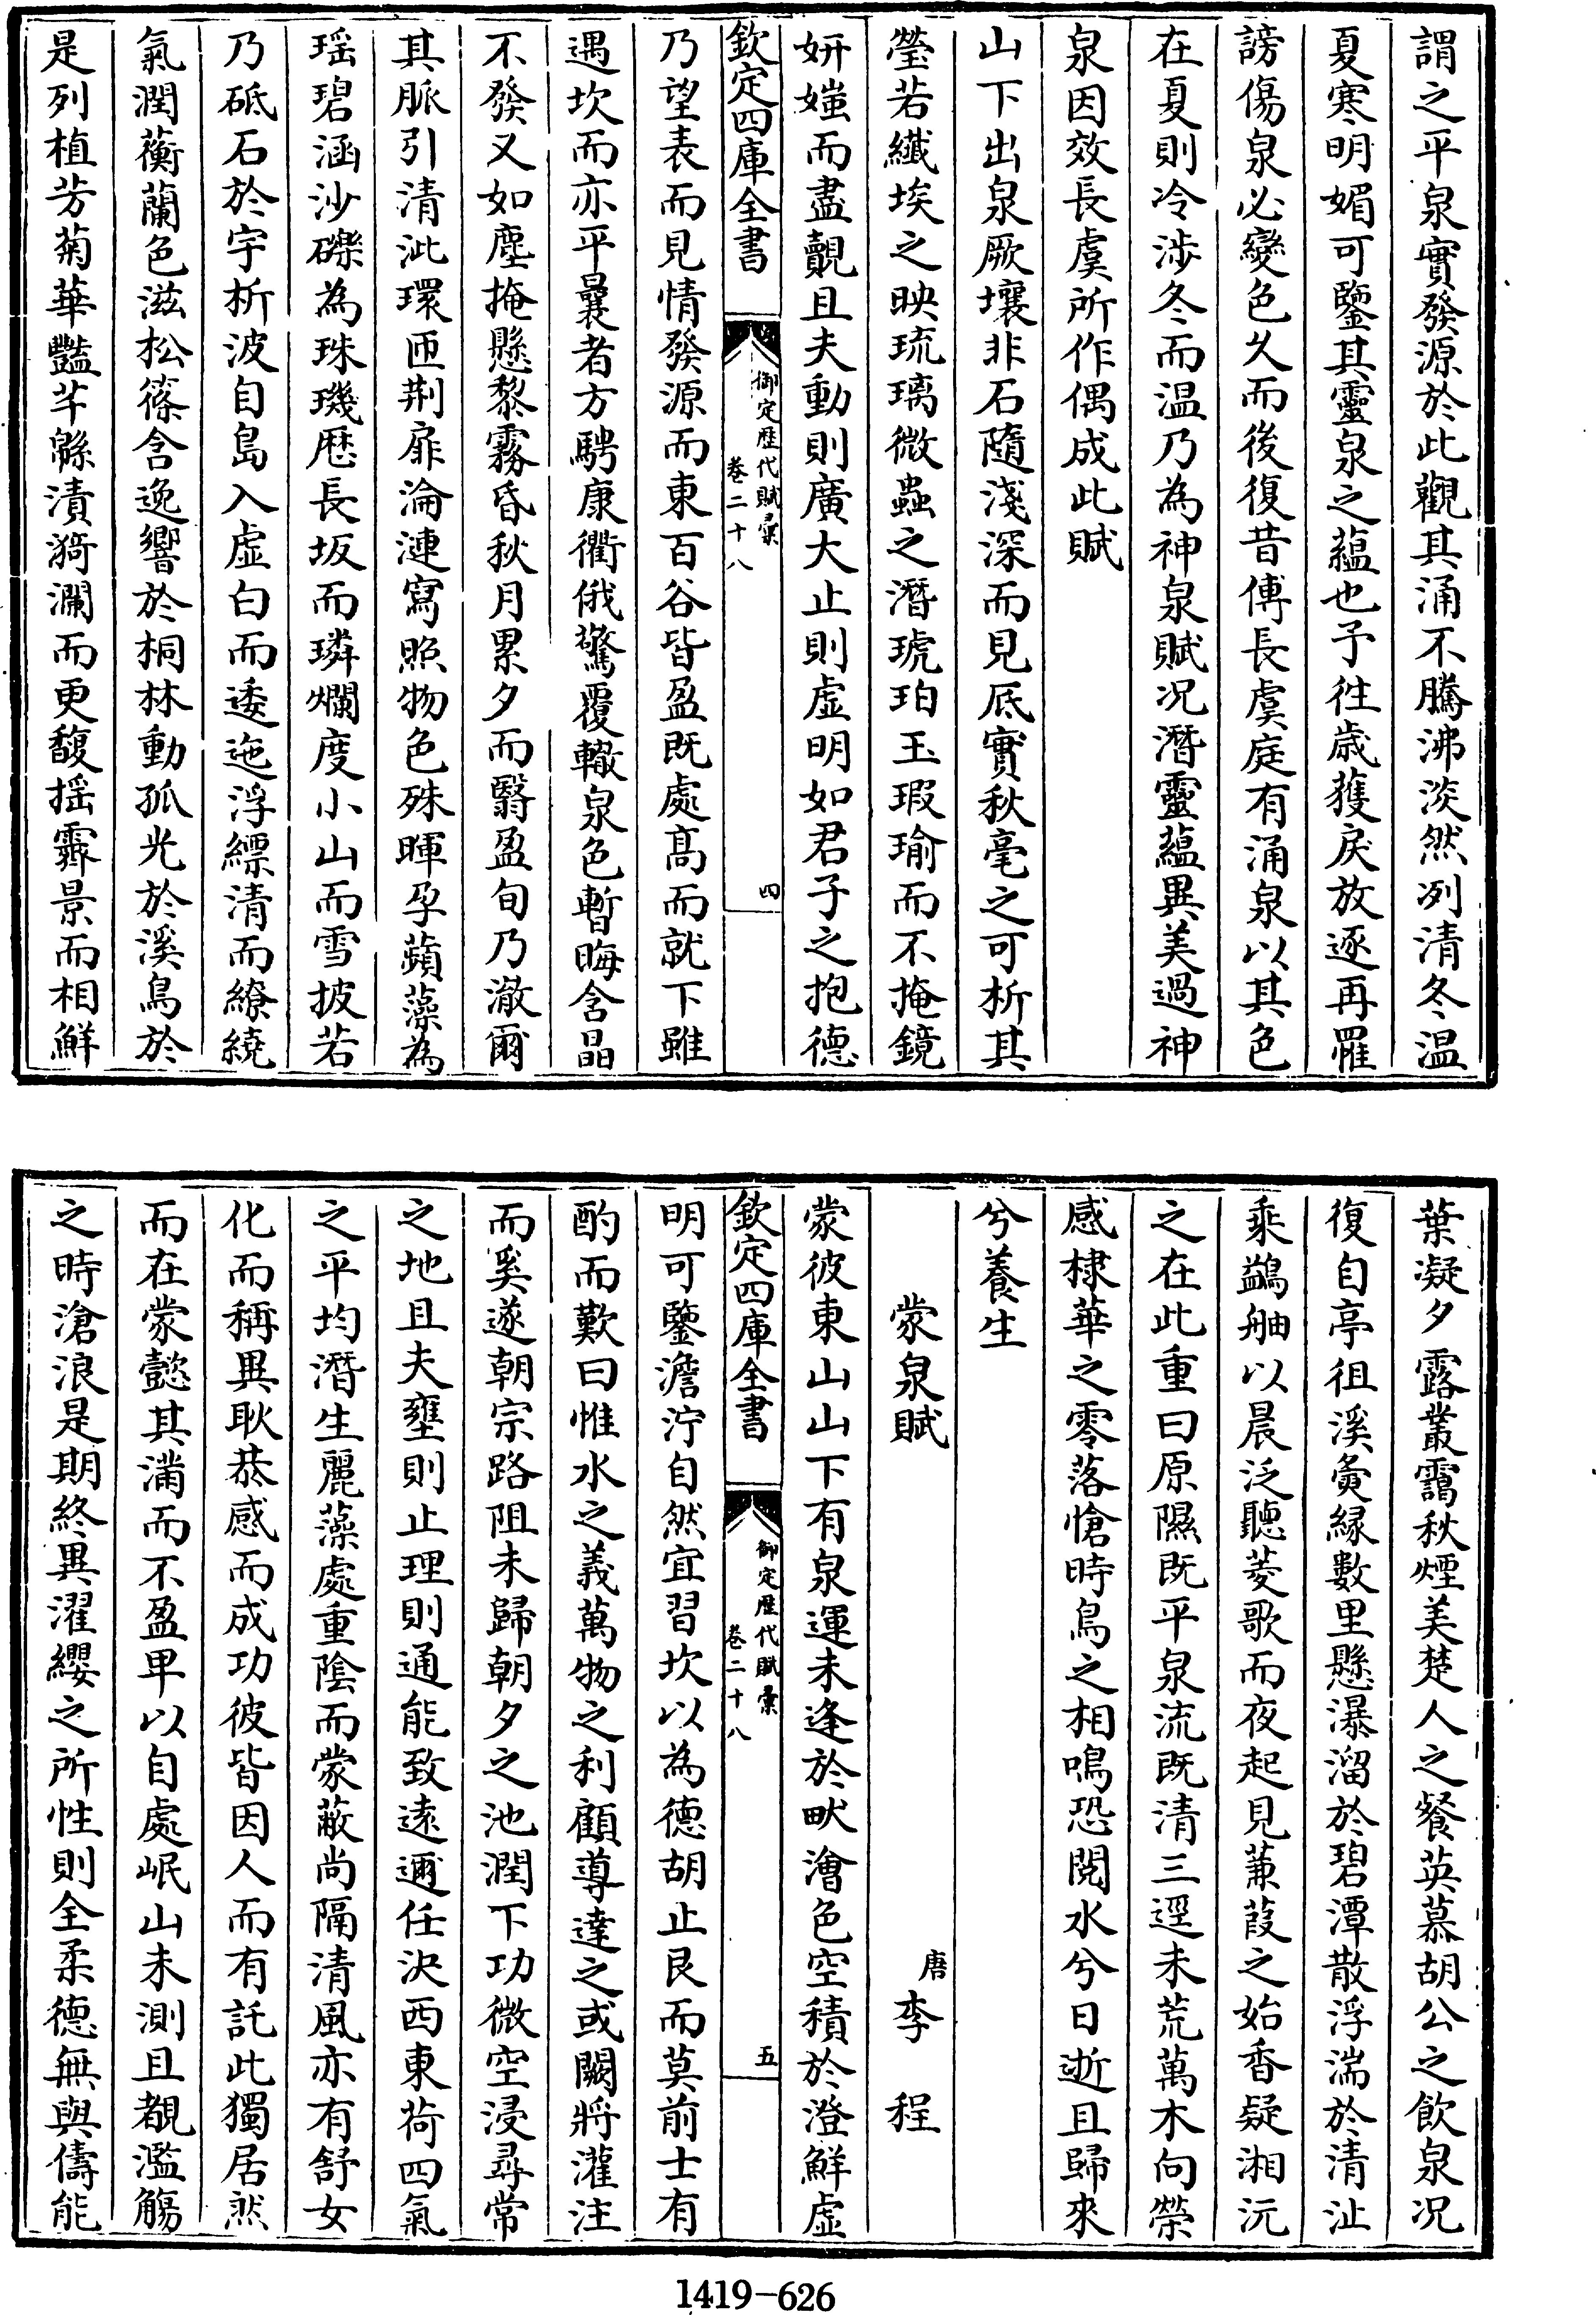 謂之平泉實發源於此觀其涌不騰沸淡然冽清冬温
夏寒明媚可鑒其靈泉之藴也予徃歲獲戾放逐再罹
謗傷泉必變色久而後復昔傅長虞庭有涌泉以其色
在夏則冷涉冬而温乃為神泉賦况潛靈藴異美過神
泉因效長虞所作偶成此賦
山下出泉厥壤非石隨淺深而見底實秋毫之可析其
瑩若纎埃之映琉璃微蟲之潛琥珀玉瑕瑜而不掩鏡
妍媸而盡覿且夫動則廣大止則虚明如君子之抱德
欽定四庫全書
御定歴代賦彙
卷二十八
四
乃望表而見情發源而東百谷皆盈既處髙而就下雖
遇坎而亦平曩者方騁康衢俄驚覆轍泉色暫晦含晶
不發又如塵掩懸黎霧昏秋月累夕而翳盈旬乃澈爾
其脈引清泚環匝荆扉淪漣寫照物色殊暉孕蘋藻為
瑶碧涵沙礫為珠璣歴長坂而璘爛度小山而雪披若
乃砥石於宇析波自島入虚白而逶迤浮縹清而繚繞
氣潤蘅蘭色滋松篠含逸響於桐林動孤光於溪鳥於
是列植芳菊華豔芊緜漬漪瀾而更馥揺霽景而相鮮
葉凝夕露叢靄秋煙美楚人之餐英慕胡公之飲泉况
復自亭徂溪夤縁數里懸瀑溜於碧潭散浮湍於清沚
乘鷁舳以晨泛聽菱歌而夜起見蒹葭之始香疑湘沅
之在此重曰原隰既平泉流既清三逕未荒萬木向榮
感棣華之零落愴時鳥之相鳴恐閲水兮日逝且歸來
兮養生
蒙泉賦
唐 李 程
蒙彼東山山下有泉運未逢於畎澮色空積於澄鮮虚
欽定四庫全書
御定歴代賦彙
卷二十八
五
明可鑒澹泞自然宜習坎以為德胡止艮而莫前士有
酌而歎曰惟水之義萬物之利顧導達之或闕將灌注
而奚遂朝宗路阻未歸朝夕之池潤下功微空浸尋常
之地且夫壅則止理則通能致逺邇任決西東荷四氣
之平均潛生麗藻處重陰而蒙蔽尚隔清風亦有舒女
化而稱異耿恭感而成功彼皆因人而有託此獨居然
而在蒙懿其滿而不盈卑以自處岷山未測且覩濫觴
之時滄浪是期終異濯纓之所性則全柔德無與儔能
1419-626